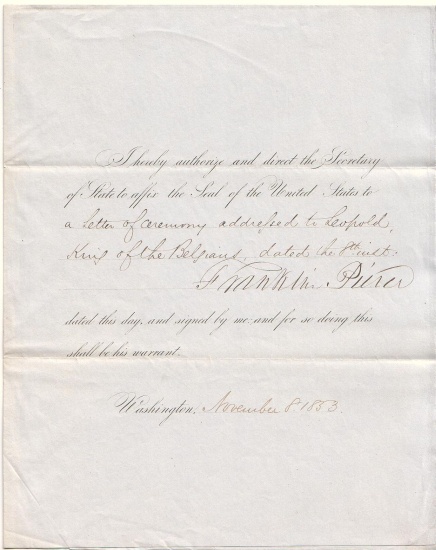 I hereby authorize and direct the Secretary
of State to affix the Seal of the United States to
a Letter of Ceremony addressed to Leopold,
King of the Belgians, dated the 8th inst:
Franklin Pierce
dated this day, and signed by me, and for so doing this
shall be his warrant.
Washington, November 8. 1853.